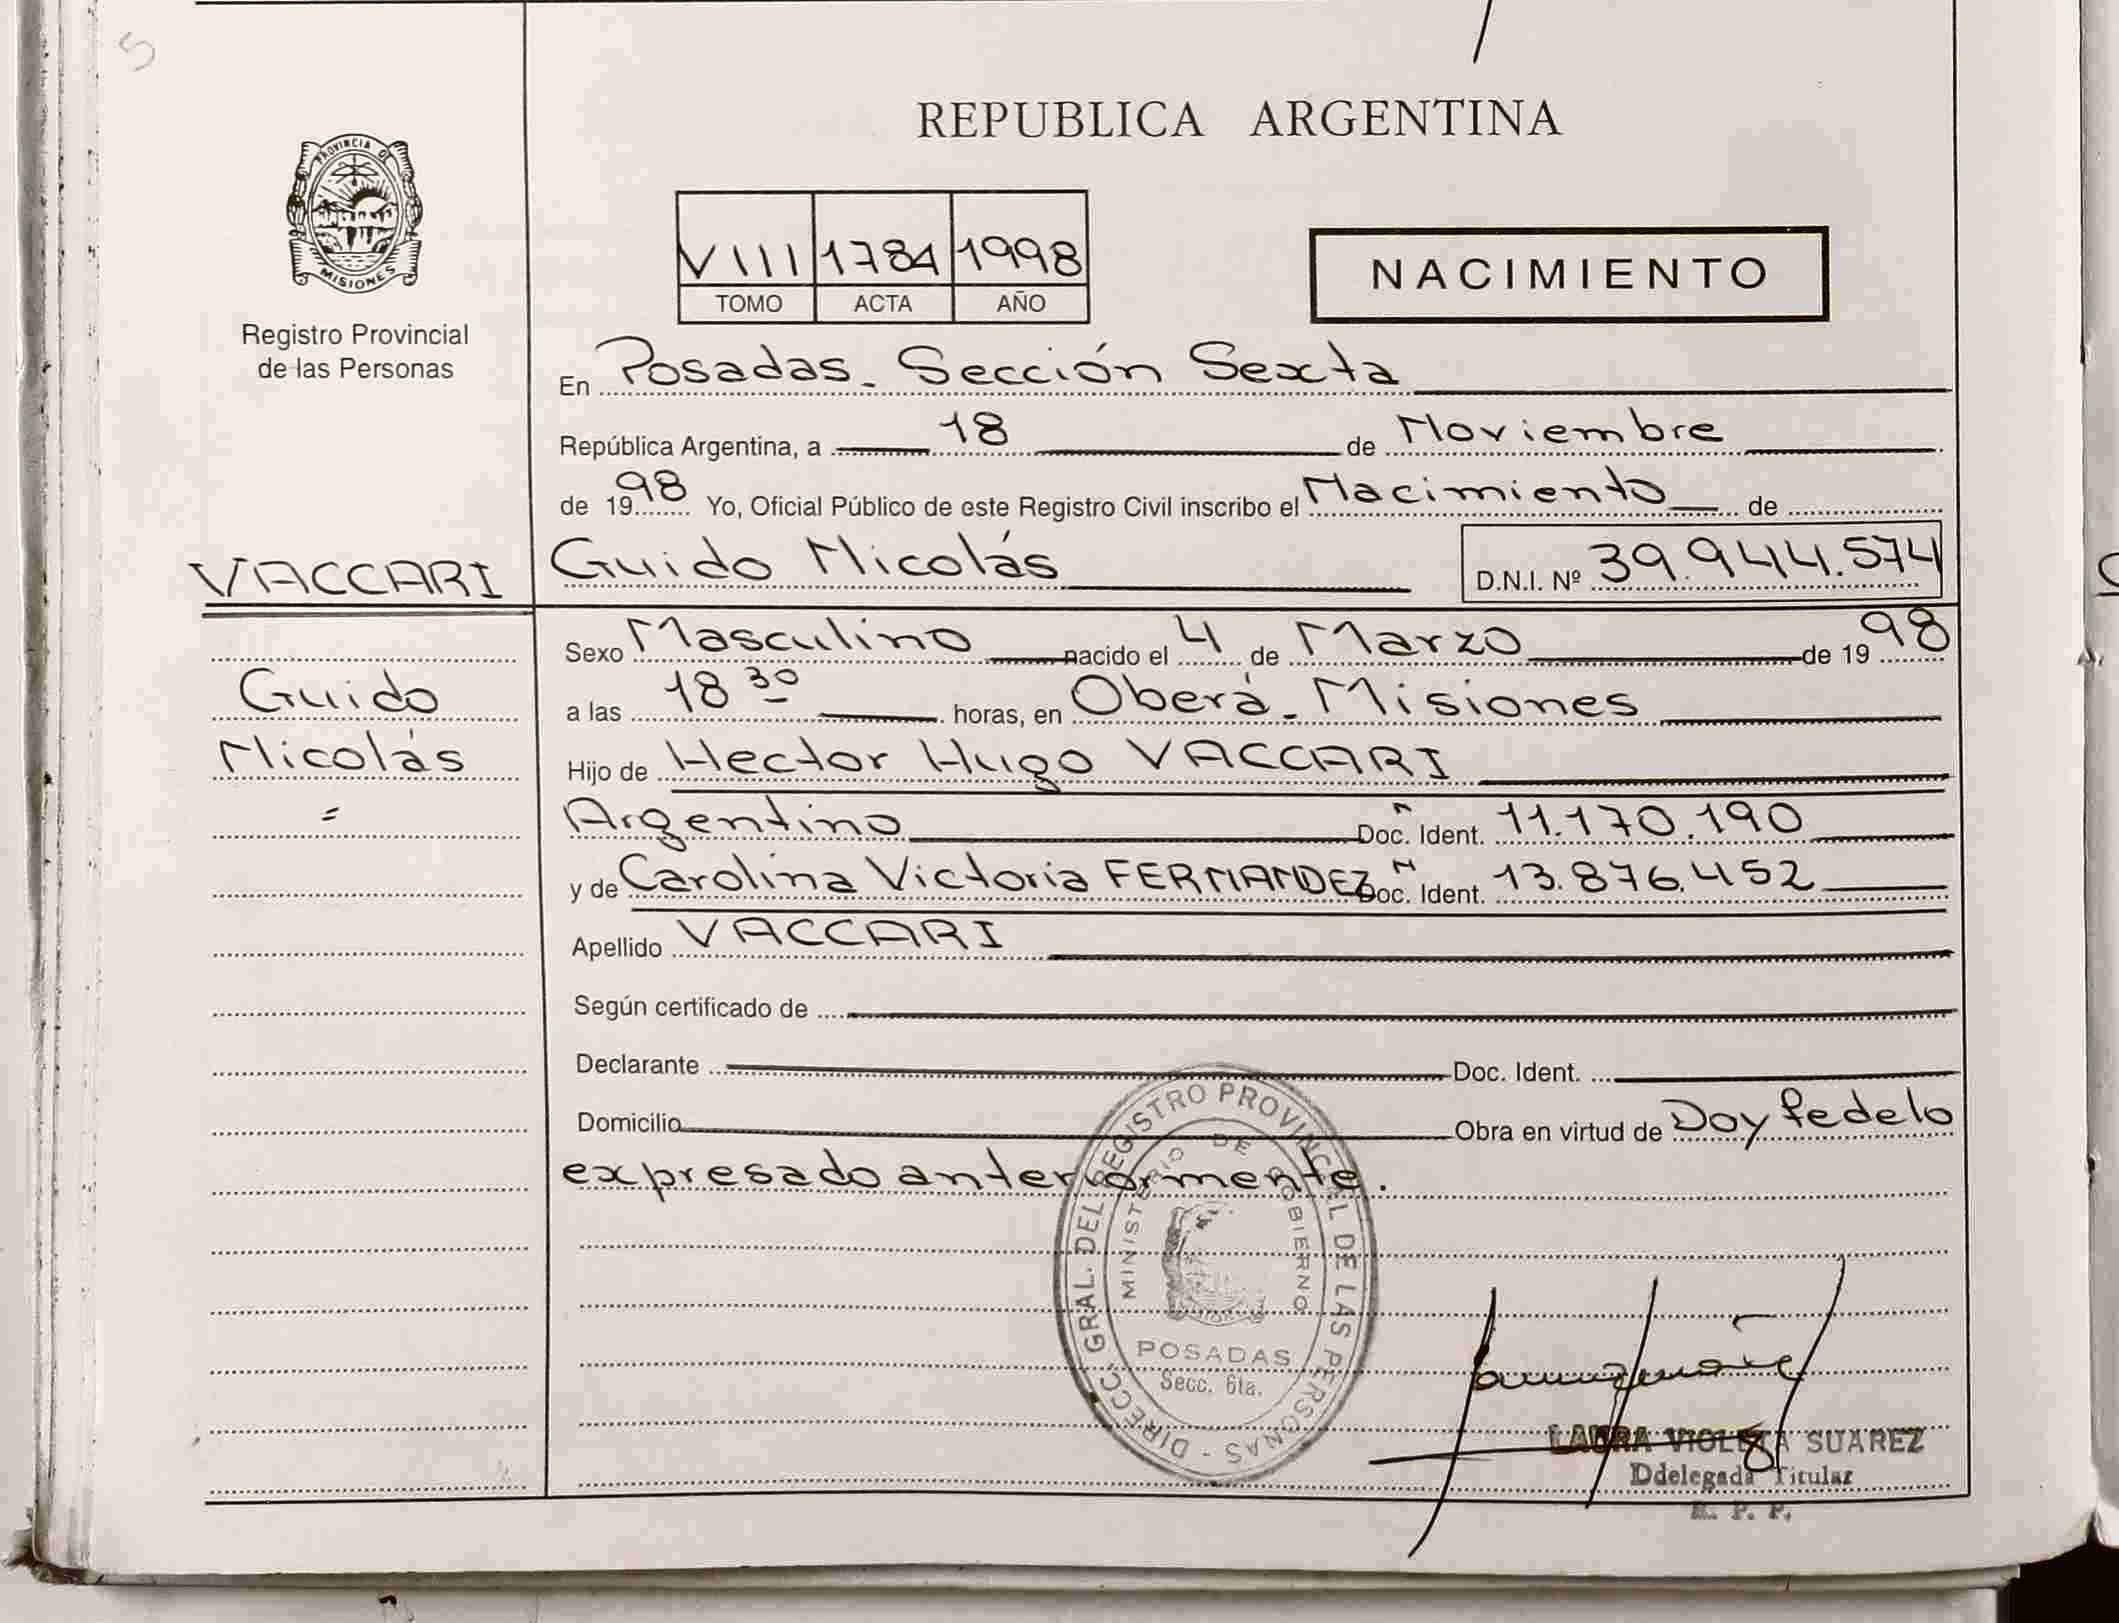 5
REPUBLICA ARGENTINA
PROVINCIA DE
MISIONES
Registro Provincial
de las Personas
VIII 1784 1998
TOMO ACTA AÑO
NACIMIENTO
En Posadas. Sección Sexta
República Argentina, a 18 de Noviembre
de 1998 Yo, Oficial Público de este Registro Civil inscribo el Nacimiento de
VACCARI Guido Nicolás D.N.I. Nº 39.944.574
Sexo Masculino nacido el 4 de Marzo de 1998
Guido
a las 18 30 horas, en Oberá - Misiones
Nicolás
Hijo de Hector Hugo VACCARI
Argentino Doc. Ident. 11.170.190
y de Carolina Victoria FERNANDEZ Doc. Ident. 13.876.452
Apellido VACCARI
Según certificado de
Declarante Doc. Ident.
Domicilio Obra en virtud de Doy fe de lo
expresado anteriormente.
DIRECC. GRAL. DEL REGISTRO PROVINCIAL DE LAS PERSONAS -
MINISTERIO DE GOBIERNO
POSADAS
Secc. 6ta.
LAURA VIOLETA SUAREZ
Ddelegada Titular
R. P. P.